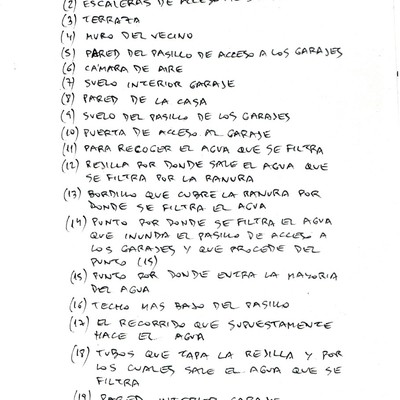 (2) ESCALERAS DE ACCESO
(3) TERRAZA
(4) MURO DEL VECINO
(5) PARED DEL PASILLO DE ACCESO A LOS GARAJES
(6) CAMARA DE AIRE
(7) SUELO INTERIOR GARAJE
(8) PARED DE LA CASA
(9) SUELO DEL PASILLO DE LOS GARAJES
(10) PUERTA DE ACCESO AL GARAJE
(11) PARA RECOGER EL AGUA QUE SE FILTRA
(12) REJILLA POR DONDE SALE EL AGUA QUE
SE FILTRA POR LA RANURA
(13) BORDILLO QUE CUBRE LA RANURA POR
DONDE SE FILTRA EL AGUA
(14) PUNTO POR DONDE SE FILTRA EL AGUA
QUE INUNDA EL PASILLO DE ACCESO A
LOS GARAJES Y QUE PROCEDE DEL
PUNTO (15)
(15) PUNTO POR DONDE ENTRA LA MAYORIA
DEL AGUA
(16) TECHO MAS BAJO DEL PASILLO
(17) EL RECORRIDO QUE SUPUESTAMENTE
HACE EL AGUA
(18) TUBOS QUE TAPA LA REJILLA Y POR
LOS CUALES SALE EL AGUA QUE SE
FILTRA
(19) PARED INTERIOR GARAJE